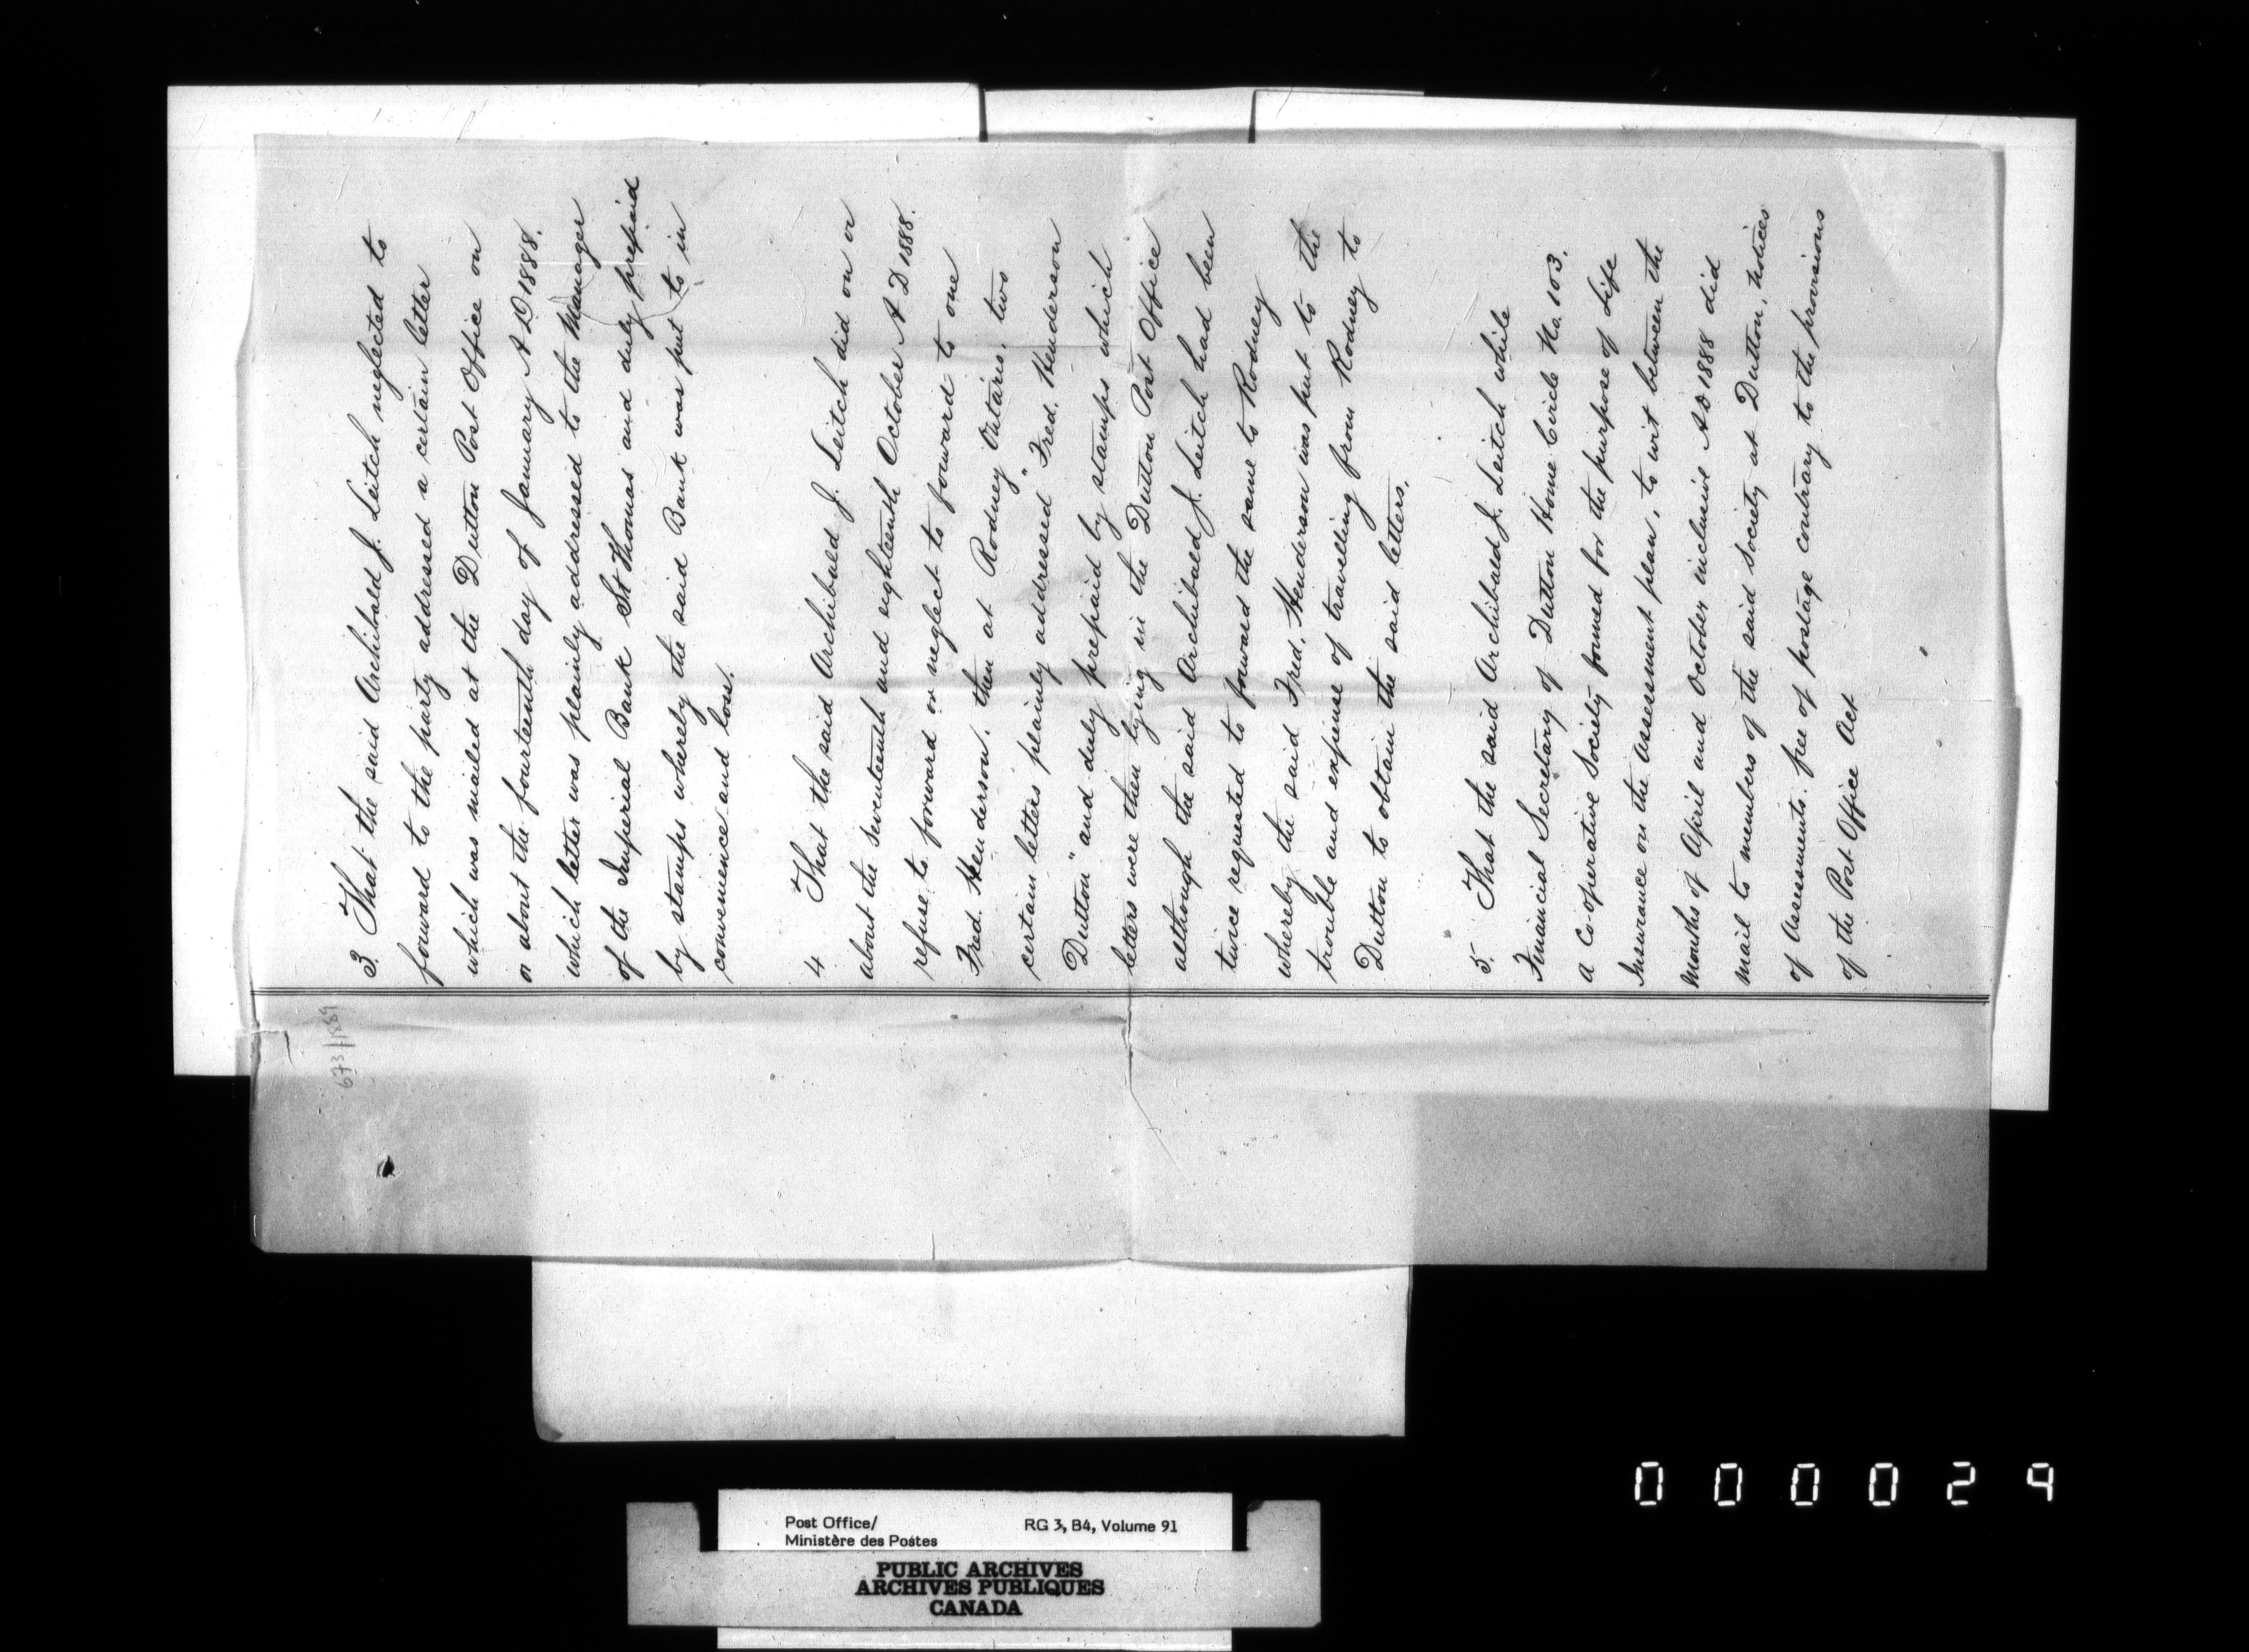 673/1889
3. That the said Archibald J. Leitch neglected to
forward to the party addressed a certain letter
which was mailed at the Dutton Post Office on
or about the fourteenth day of January A D 1888.
which letter was plainly addressed to the Manager
of the Imperial Bank St Thomas and duly prepaid
by stamps whereby the said Bank was put to in
convenience and loss.
4 That the said Archibald J. Leitch did on or
about the seventeenth and eighteenth October A D 1888.
refuse to forward or neglect to forward to one
Fred. Henderson. then at Rodney Ontario, two
certain letters plainly addressed "Fred. Henderson
Dutton" and duly prepaid by stamps which
letters were then lying in the Dutton Post Office
although the said Archibald J. Leitch had been
twice requested to forward the same to Rodney
whereby the said Fred. Henderson was put to the
trouble and expense of travelling from Rodney to
Dutton to obtain the said letters.
5. That the said Archibald J. Leitch while
Financial Secretary of Dutton Home Circle No. 103.
a Co-operative Society formed for the purpose of Life
Insurance on the Assessment plan, to wit between the
Months of April and October inclusive A D 1888 did
mail to members of the said Society at Dutton, notices
of Assessments. free of postage contrary to the provisions
of the Post Office Act
000029
Post Office/ RG 3, B4, Volume 91
Ministère des Postes
PUBLIC ARCHIVES
ARCHIVES PUBLIQUES
CANADA